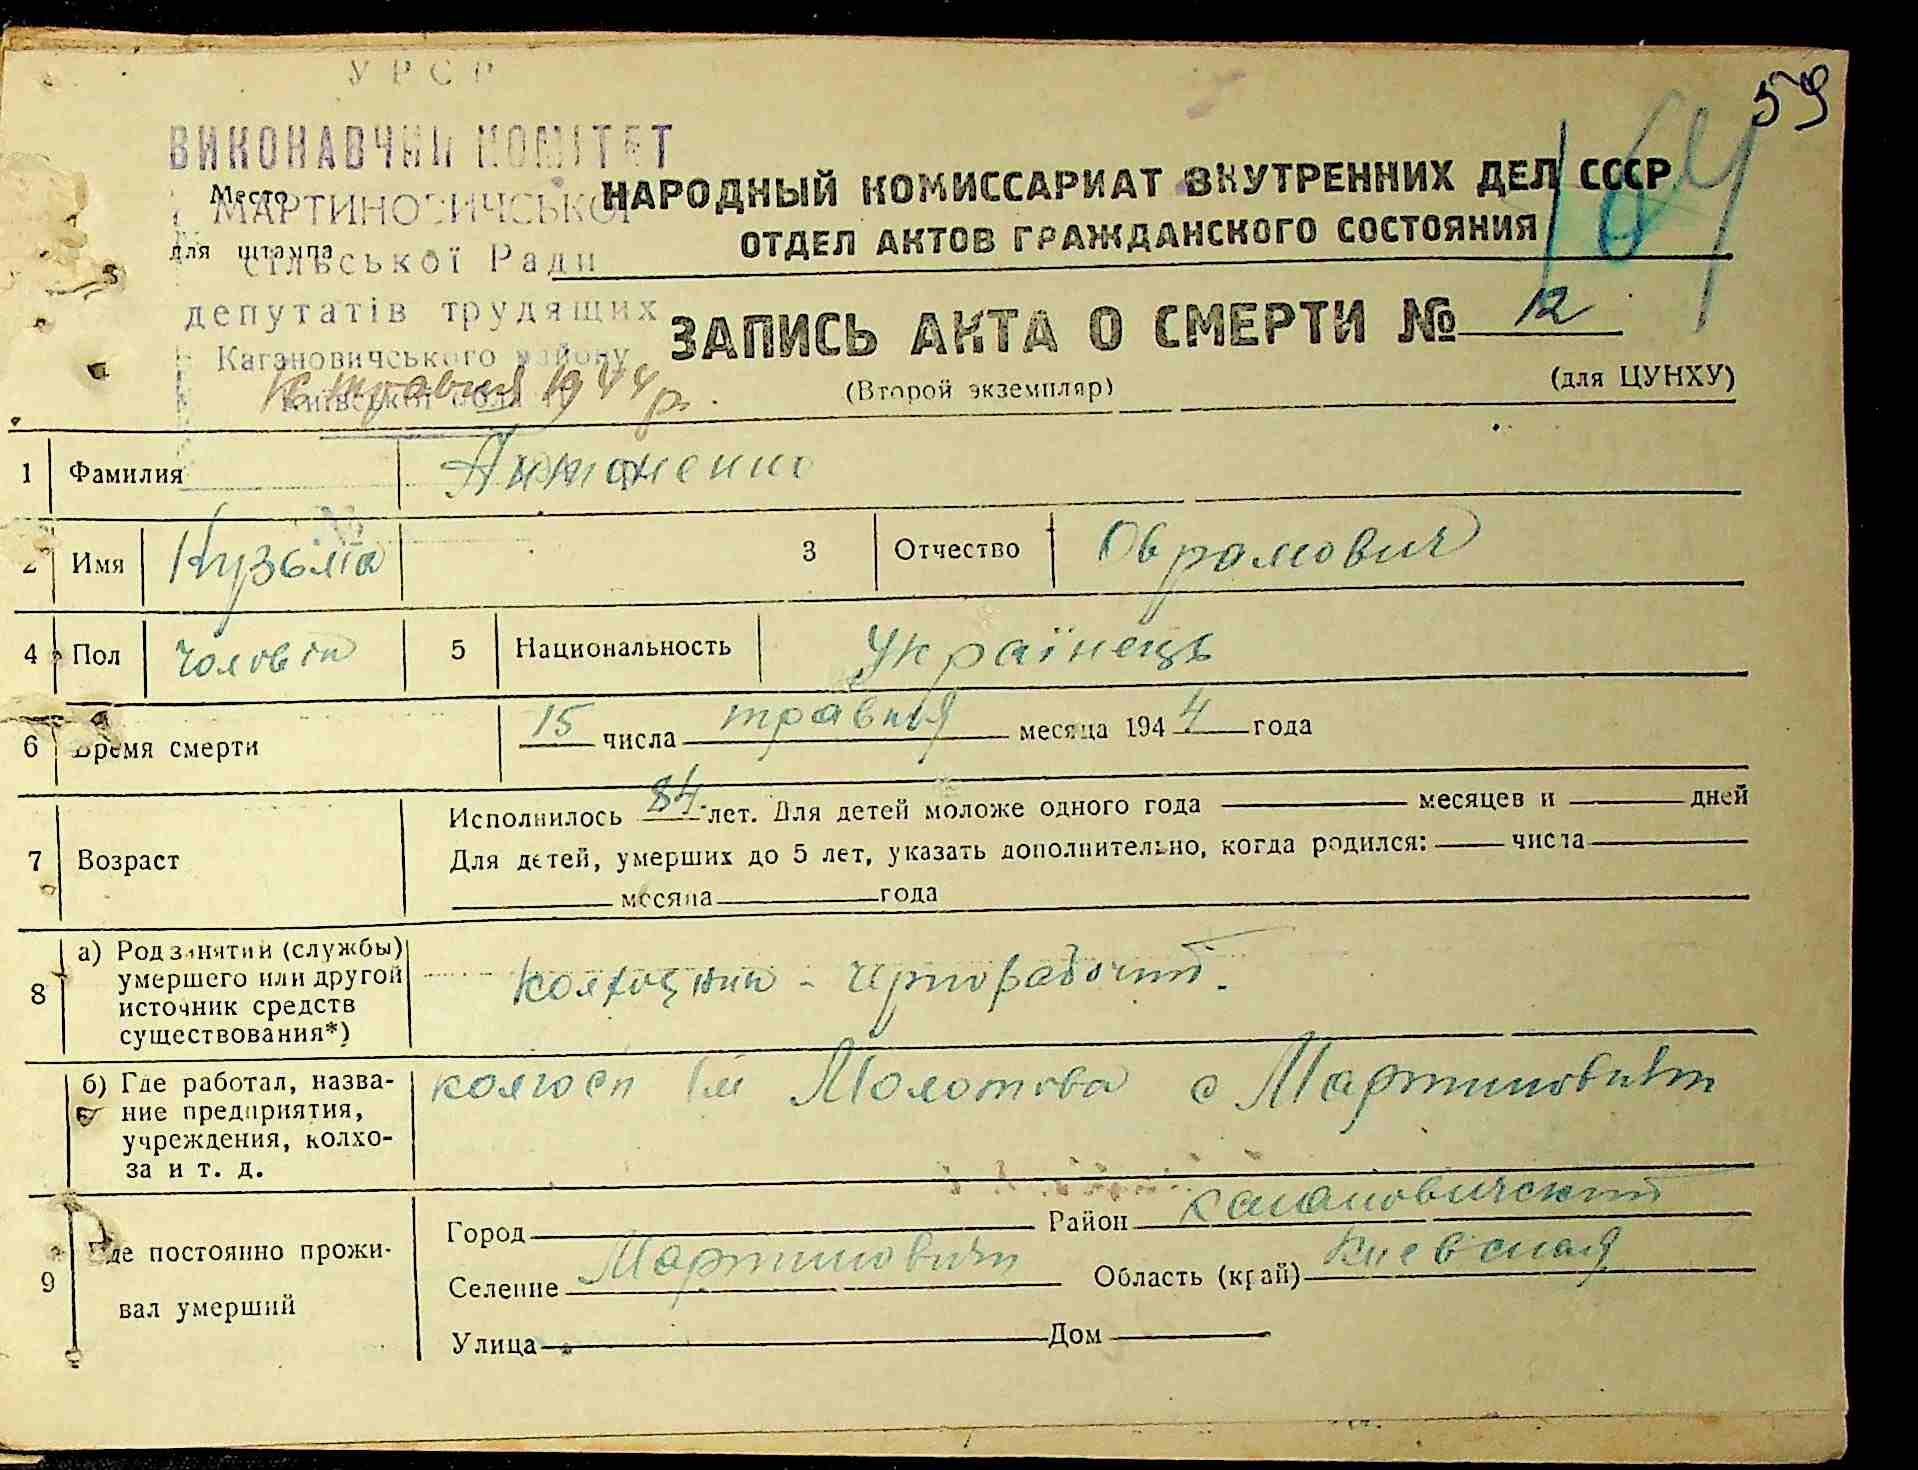 УРСР
59
164
ВИКОНАВЧИЙ КОМІТЕТ
Место
МАРТИНОВИЧСЬКОЇ
НАРОДНЫЙ КОМИССАРИАТ ВНУТРЕННИХ ДЕЛ СССР
для штампа
сільської Ради
ОТДЕЛ АКТОВ ГРАЖДАНСКОГО СОСТОЯНИЯ
депутатів трудящих
ЗАПИСЬ АКТА О СМЕРТИ № 12
Кагановичського району
травня 1944 р.
(Второй экземпляр)
(для ЦУНХУ)
1 Фамилия Антоненко
№
2 Имя Кузьма 3 Отчество Оврамович
4 Пол чоловік 5 Национальность Українець
6 Время смерти 15 числа травня месяца 1944 года
7 Возраст
Исполнилось 84 лет. Для детей моложе одного года месяцев и дней
Для детей, умерших до 5 лет, указать дополнительно, когда родился: числа
месяца года
8 а) Род занятий (службы)
умершего или другой
источник средств
существования*)
колхозник - чернорабочий.
б) Где работал, назва-
ние предприятия,
учреждения, колхо-
за и т. д.
колгосп ім Молотова с Мартиновичі
9 Где постоянно прожи-
вал умерший
Город Район Кагановический
Селение Мартиновичі Область (край) Киевская
Улица Дом